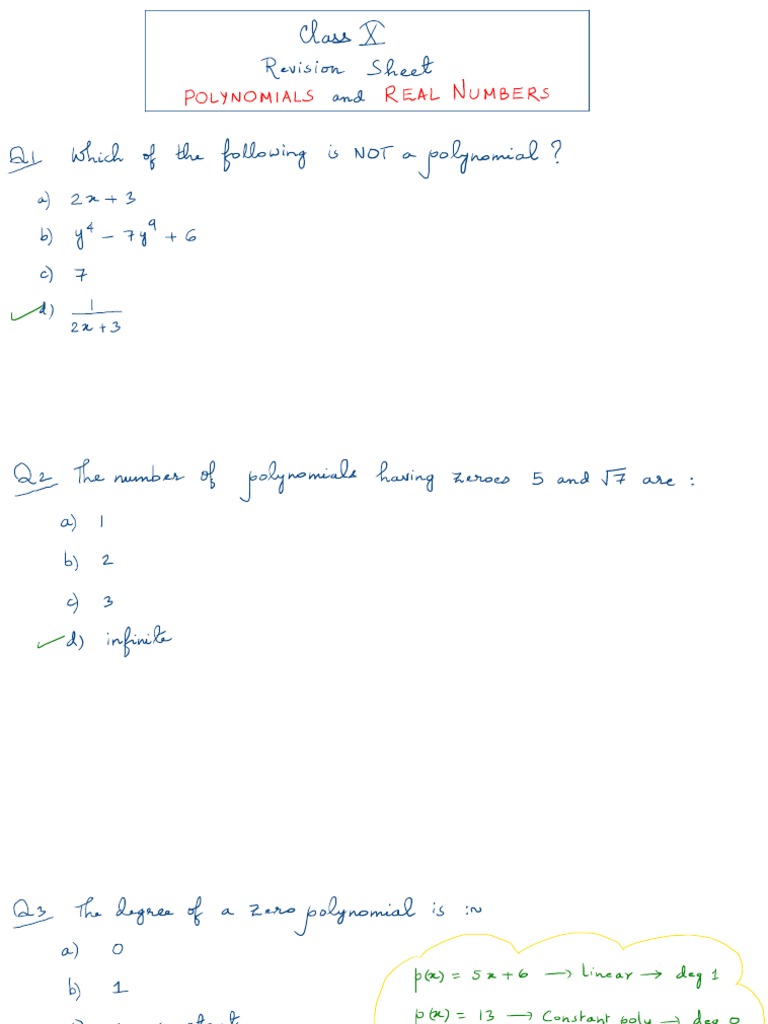 Class X
Revision Sheet
POLYNOMIALS and REAL NUMBERS
Q1 Which of the following is NOT a polynomial?
a) 2x + 3
b) y⁴ − 7y⁹ + 6
c) 7
✓ d) 1/(2x + 3)
Q2 The number of polynomials having zeroes 5 and √7 are :
a) 1
b) 2
c) 3
✓ d) infinite
Q3 The degree of a zero polynomial is :~
a) 0
b) 1
p(x) = 5x + 6 → linear → deg 1
p(x) = 13 → Constant poly → deg 0